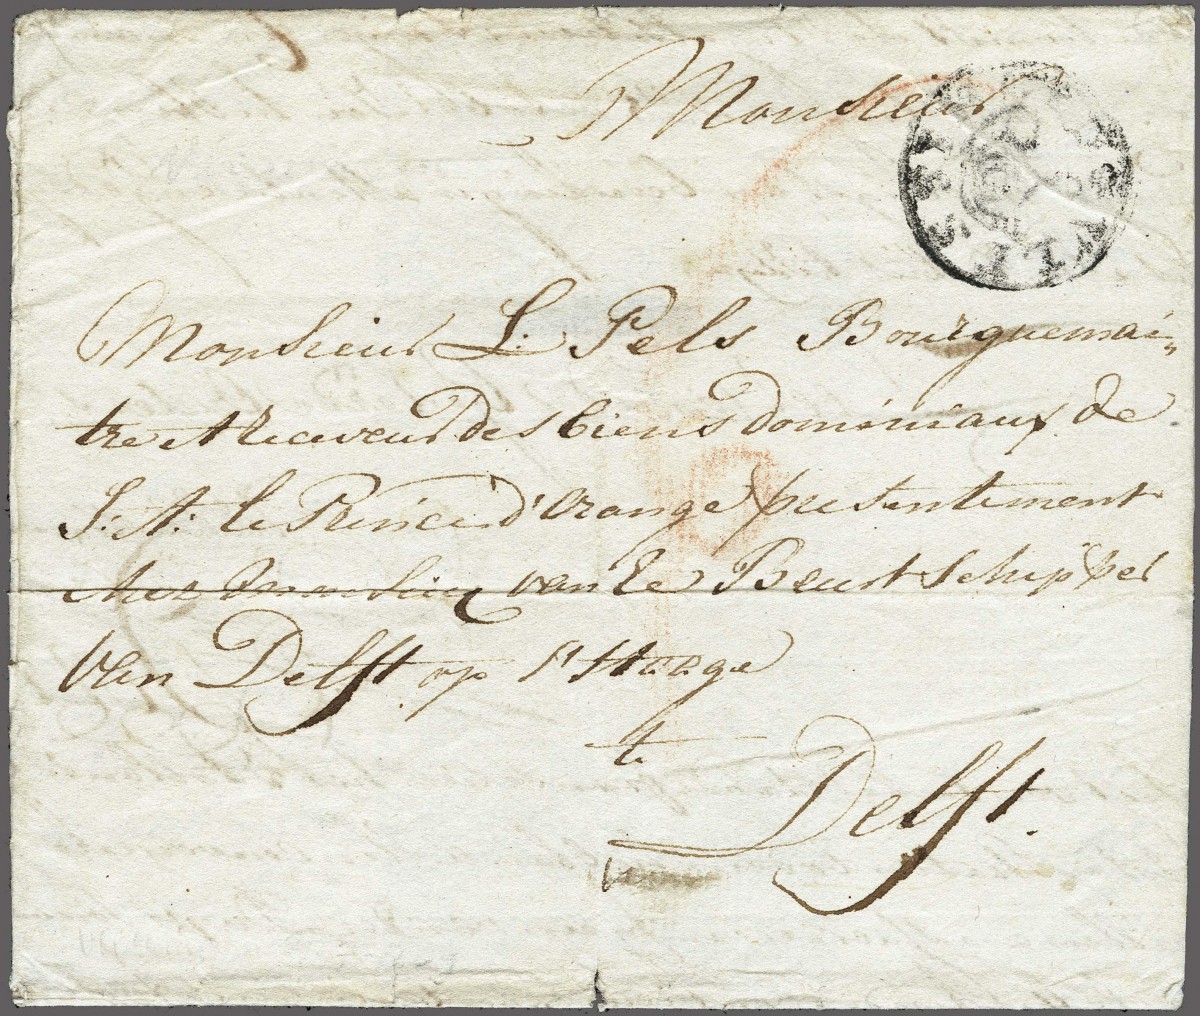 Monsieur
Monsieur L: Pels Bourguemai„
tre et Receveur des biens dominiaux de
S: A: le Prince d'Orange presentement
chez van de Beurt schipper
van Delft op s'Haage
te
Delft.